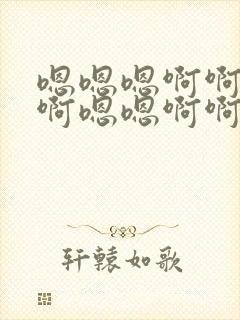 嗯嗯嗯啊啊
啊嗯嗯啊啊
轩辕如歌